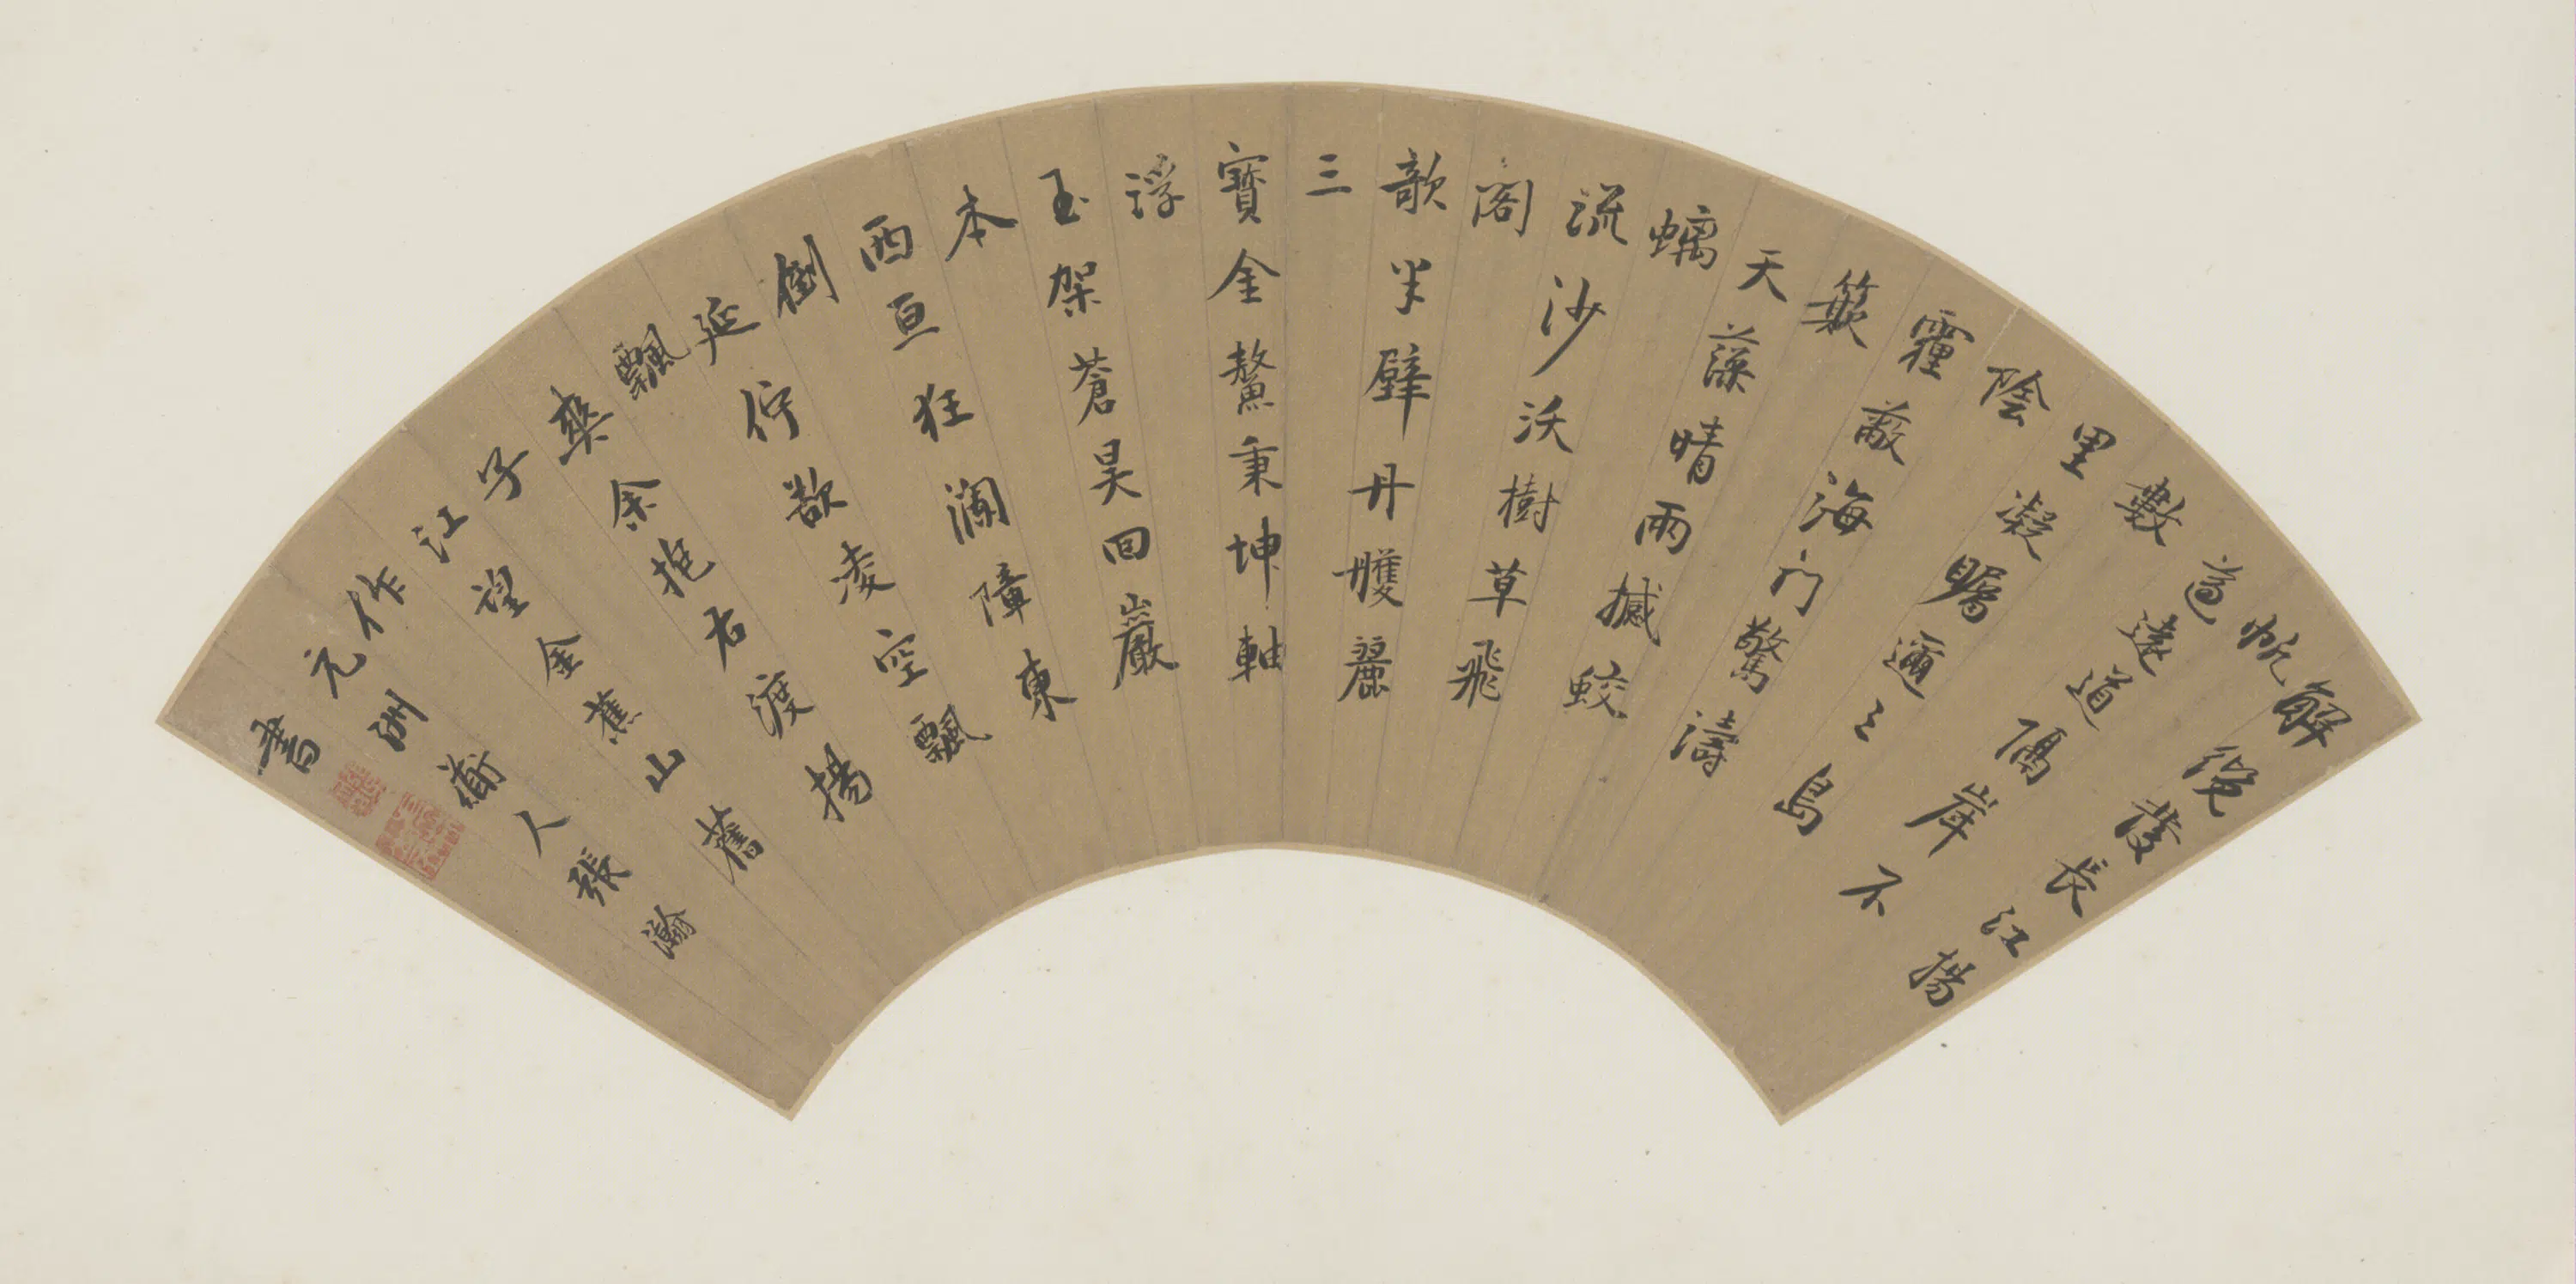 解纜發長江揚
帆
遵遠道隔岸不
數
里凝矚邇三島
陰
霾蔽海門驚濤
簸
天藻晴雨撼蛟
螭
流沙沃樹草飛
閣
欹半壁丹雘麗
三
寶金鰲秉坤軸
浮
玉架蒼昊回巖
本
西亘狂瀾障東
倒
延佇欲凌空飄
飄
爽余抱右渡揚
子
江望金蕉山舊
作
元洲衜人張瀚
書